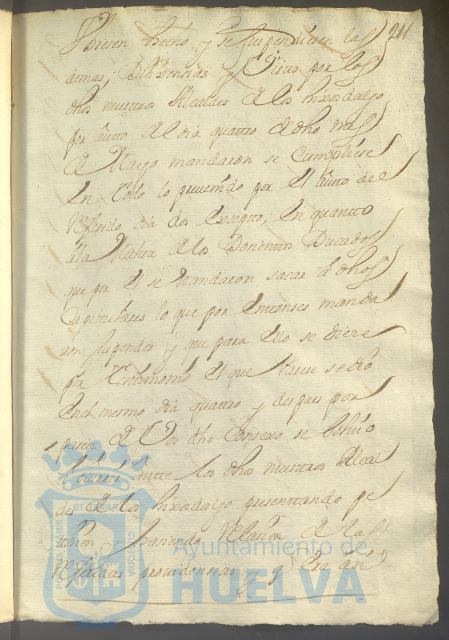 211
hubiesen hecho y se suspendiesen las
demas, Dilixencias y Vistas por los
dhos nuestros Alcaldes de los hixosdalgo
por Auto del dia quatro de dho mes
de Mayo mandaron se Cumpliese
En todo lo prevenido por el Auto de el
Referido dia dos eszepto, En quanto
a la Multa de los Docientos Ducados
que por el se mandaron sacar a dhos
Capitulares lo que por entonces manda
ron suspender y que para ello se diese
por testimonio el que parece se dio
en el mismo dia quatro y despues por
parte de Vos dho Consexo se bolvio
a ocurrir Ante los dhos nuestros Alcal
des de los hixosdalgo presentando pe
tizion y haziendo Relazion de las
Referidas providencias y q Era asi
Ayuntamiento de
HUELVA